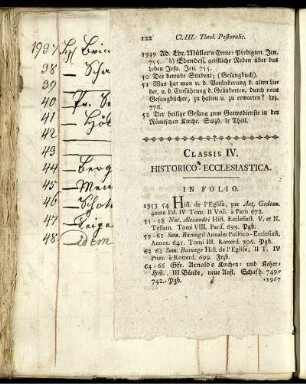 1937
38 — Scha
39 —
40 —
41 —
44 — Berg
45 —
46 —
47
48 — idem
122 Cl. III. Theol. Pastoralis.
1949 Ad. Ldr. Müller's Ernte-Predigten Jen.
715. b) Ebendess. geistliche Reden über das
leben Jesu. Jen. 715.
50 Der betende Student; (Gesangbuch).
51 Was hat man v. d. Veränderung d. alten Lieder,
u. d. Einführung d. Geänderten, durch neue
Gesangbücher, zu halten u. zu erwarten?
772.
52 Der heilige Gesang zum Gottesdienste in der
Römischen Kirche. Salzb. Ir Theil.
CLASSIS IV.
HISTORICO ECCLESIASTICA.
IN FOLIO.
1953 54 Hist. de l'Eglise, par Ant. Godeau
Ed. IV Tom. II Voll. à Paris 672.
55-58 Nat. Alexandri Hist. Ecclesiast. V. et N.
Testam. Tomi VIII. Paris. 699. Pgb.
59-61 Sam. Basnagii Annales Politico-Ecclesiast.
Annor. 645. Tomi III. Roterod. 706. Pgb.
62 63 Sam. Basnage Hist. de l'Eglise, II T. IV
Prtt. à Rotterd. 699. Frzb.
64-66 Gfr. Arnolds Kirchen- und Ketzer-
Hist. III Bände, neue Aufl. Schafh. 740-
742. Pgb.
1967